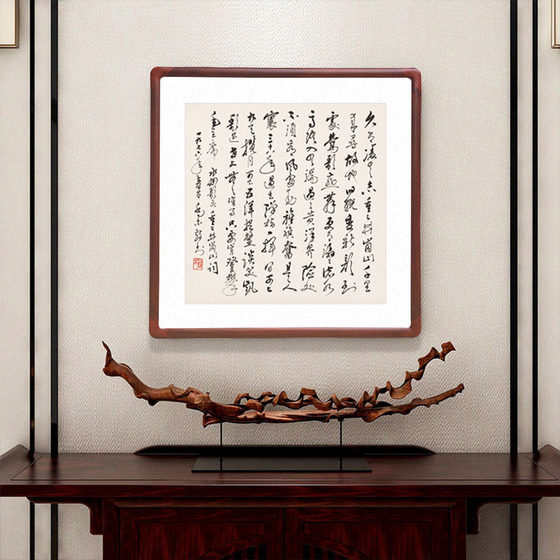 久有凌云志重上井岗山千里
来寻故地旧貌变新颜到
处莺歌燕舞更有潺潺流水
高路入云端过了黄洋界险处
不须看风雷动旌旗奋是人
寰三十八年过去弹指一挥间可上
九天揽月可下五洋捉鳖谈笑凯
歌还世上无难事只要肯登攀
毛主席 水调歌头 重上井岗山词
一九七六年